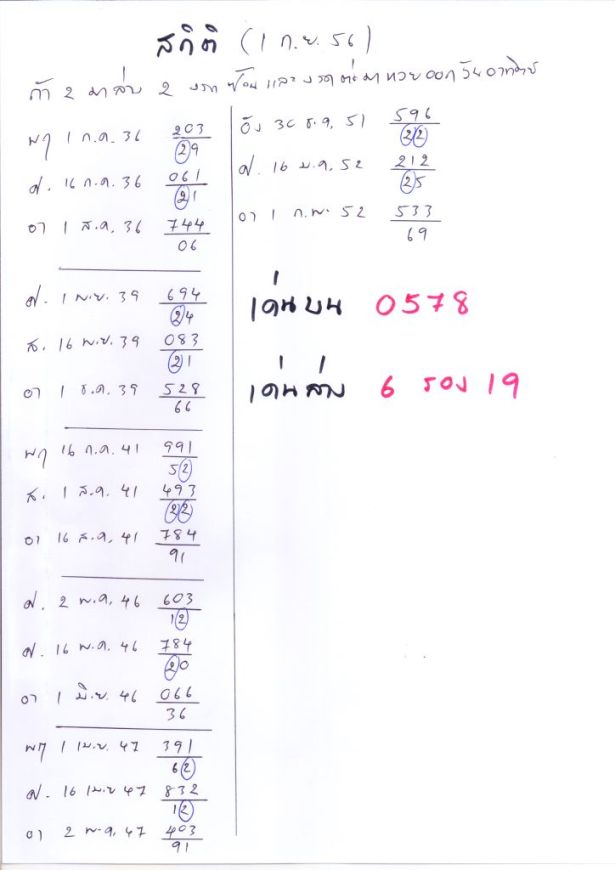 สถิติ (1 ก.ย. 56)
ถ้า 2 มาล่าง 2 งวดซ้อน และงวดต่อมาหวยออกวันอาทิตย์
พฤ 1 ก.ค. 36 203
29
ศ. 16 ก.ค. 36 061
21
อา 1 ส.ค. 36 744
06
ศ. 1 พ.ย. 39 694
24
ส. 16 พ.ย. 39 083
21
อา 1 ธ.ค. 39 528
66
พฤ 16 ก.ค. 41 991
52
ส. 1 ส.ค. 41 493
22
อา 16 ส.ค. 41 784
91
ศ. 2 พ.ค. 46 603
12
ศ. 16 พ.ค. 46 784
20
อา 1 มิ.ย. 46 066
36
พฤ 1 เม.ย. 47 391
62
ศ. 16 เม.ย 47 832
12
อา 2 พ.ค. 47 403
91
อัง 30 ธ.ค. 51 596
22
ศ. 16 ม.ค. 52 212
25
อา 1 ก.พ. 52 533
69
เด่นบน 0578
เด่นล่าง 6 รอง 19